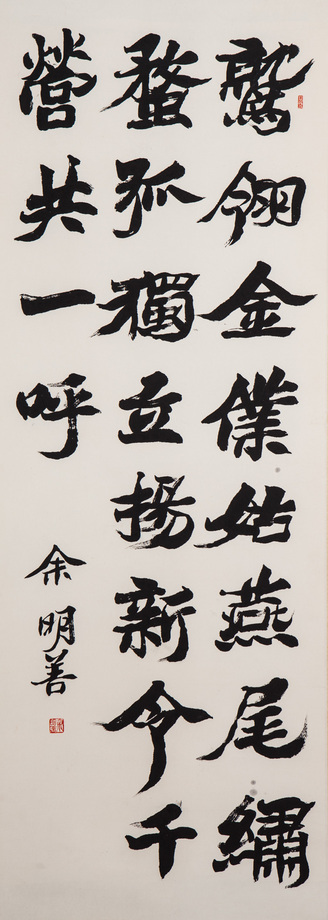 鷲翎金僕姑燕尾繡
蝥孤獨立揚新令千
營共一呼
余明善